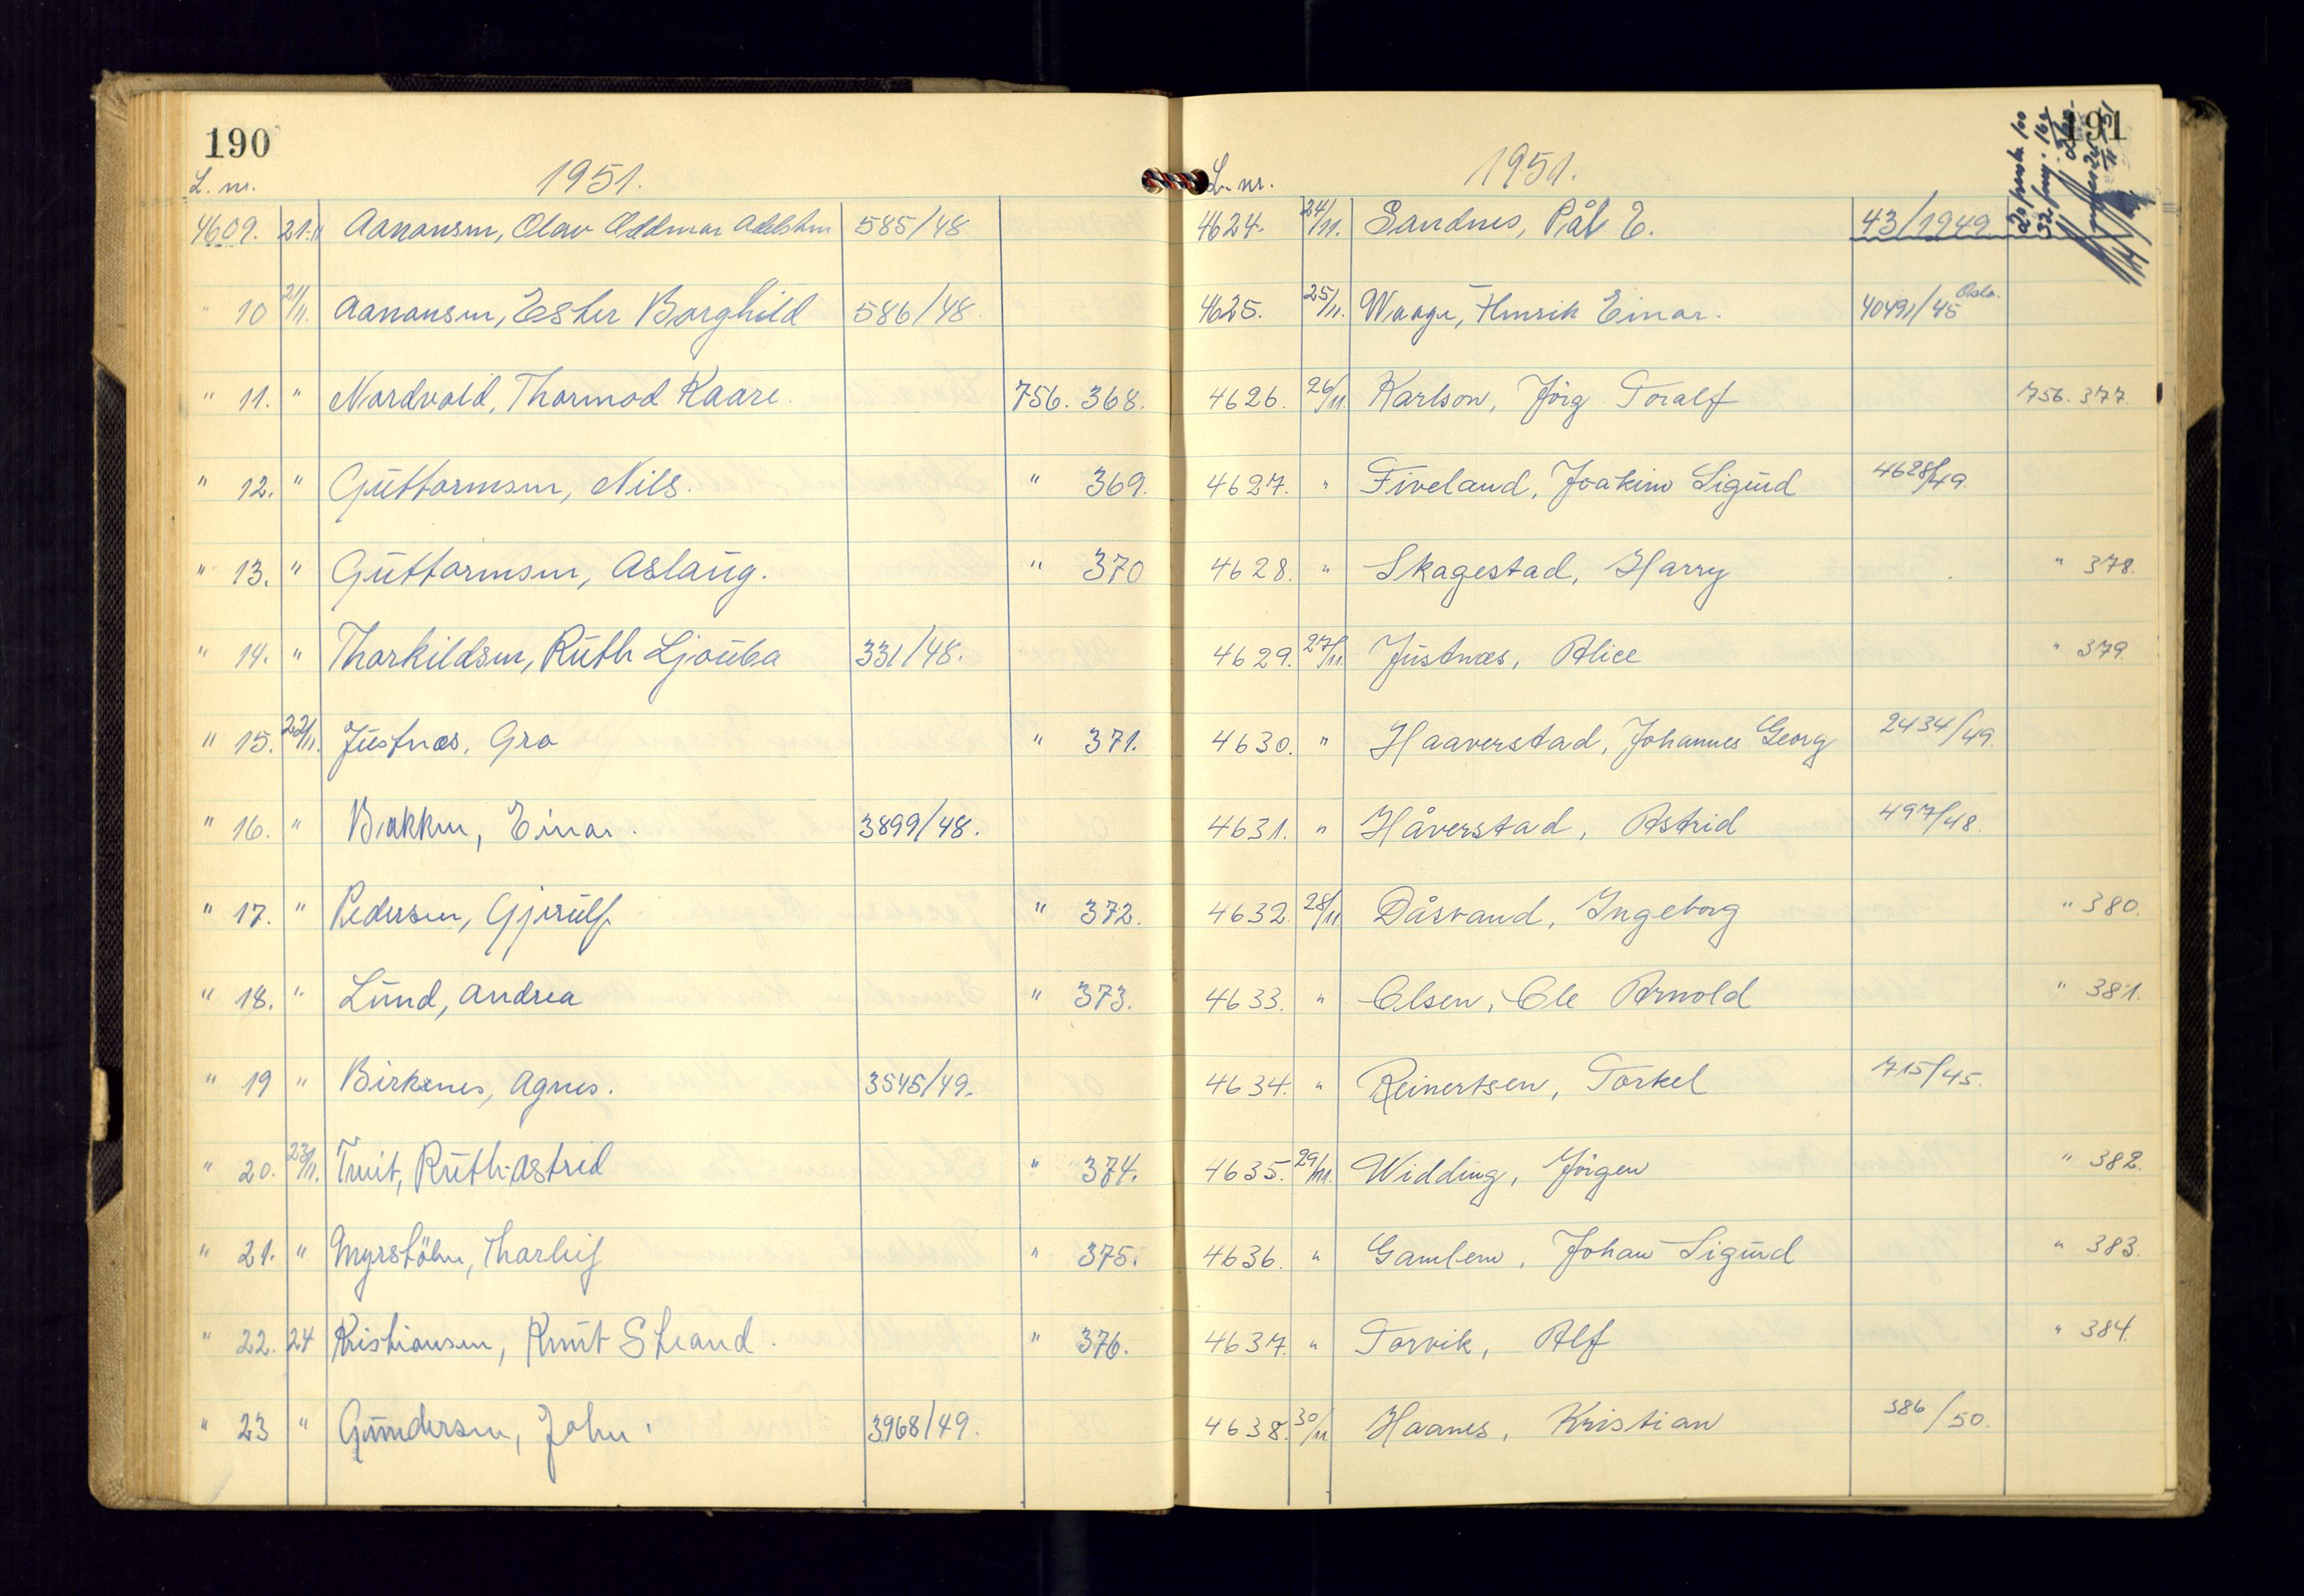 190
L. nr. 1951.
4609. 21.11 Aanonsen, Olav Oddmar Adelsten 585/48
" 10 21/11. Aanonsen, Esther Borghild 586/48.
" 11. " Nordvold, Thormod Kaare. 756. 368.
" 12. " Guttormsen, Nils. " 369.
" 13. " Guttormsen, Aslaug. " 370
" 14. " Thorkildsen, Ruth Ljouba 331/48.
" 15. 22/11. Justnæs, Gro " 371.
" 16. " Bakken, Einar. 3899/48.
" 17. " Pedersen, Gjerulf " 372.
" 18. " Lund, Andrea " 373.
" 19 " Birkenes, Agnes. 3545/49.
" 20. 23/11. Tveit, Ruth Astrid " 374.
" 21. " Myrstölen, Thorleif " 375.
" 22. 24 Kristiansen, Knut Strand. " 376.
" 23 " Gundersen, John. 3968/49.
191
L. nr. 1951.
4624. 24/11. Sandnes, Pål E. 43/1949
4625. 25/11. Waage, Henrik Einar. 40491/45 Oslo.
4626. 26/11 Karlson, Jörg Toralf 756. 377.
4627. " Fiveland, Joakim Sigurd 4628/49.
4628. " Skagestad, Harry " 378.
4629. 27/11. Justnæs, Alice " 379.
4630. " Haaverstad, Johannes Georg 2434/49.
4631. " Håverstad, Astrid 497/48.
4632. 28/11 Dåsvand, Ingeborg " 380.
4633. " Olsen, Ole Arnold " 381.
4634. " Reinertsen, Torkel 715/45.
4635. 29/11. Widding, Jörgen " 382.
4636. " Gamlem, Johan Sigurd " 383.
4637. " Torvik, Alf " 384.
4638. 30/11 Haanes, Kristian 386/50.